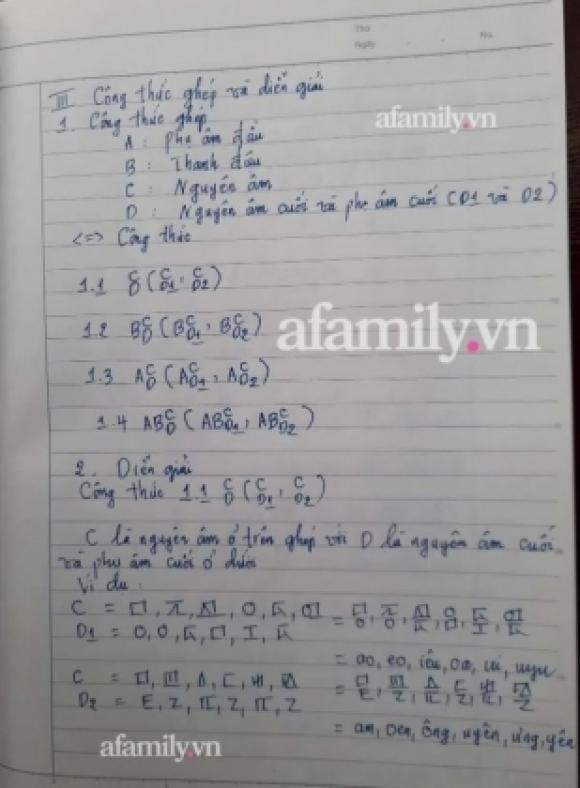 Thứ
Ngày
No.
III Công thức ghép và diễn giải
1. Công thức ghép
afamily.vn
A : phụ âm đầu
B : Thanh đầu
C : Nguyên âm
D : Nguyên âm cuối và phụ âm cuối (D1 và D2)
<=> Công thức
1.1 C/D (C/D1, C/D2)
1.2 BC/D (BC/D1, BC/D2)
afamily.vn
1.3 AC/D (AC/D1, AC/D2)
1.4 ABC/D (ABC/D1, ABC/D2)
2. Diễn giải
Công thức 1.1 C/D (C/D1, C/D2)
C là nguyên âm ở trên ghép với D là nguyên âm cuối
và phụ âm cuối ở dưới
Ví dụ :
C =
D1 =
= ao, eo, iêu, oa, ui, uyu
C =
D2 = E, Z,
= an, oen, ông, uyên, ưng, yên
afamily.vn